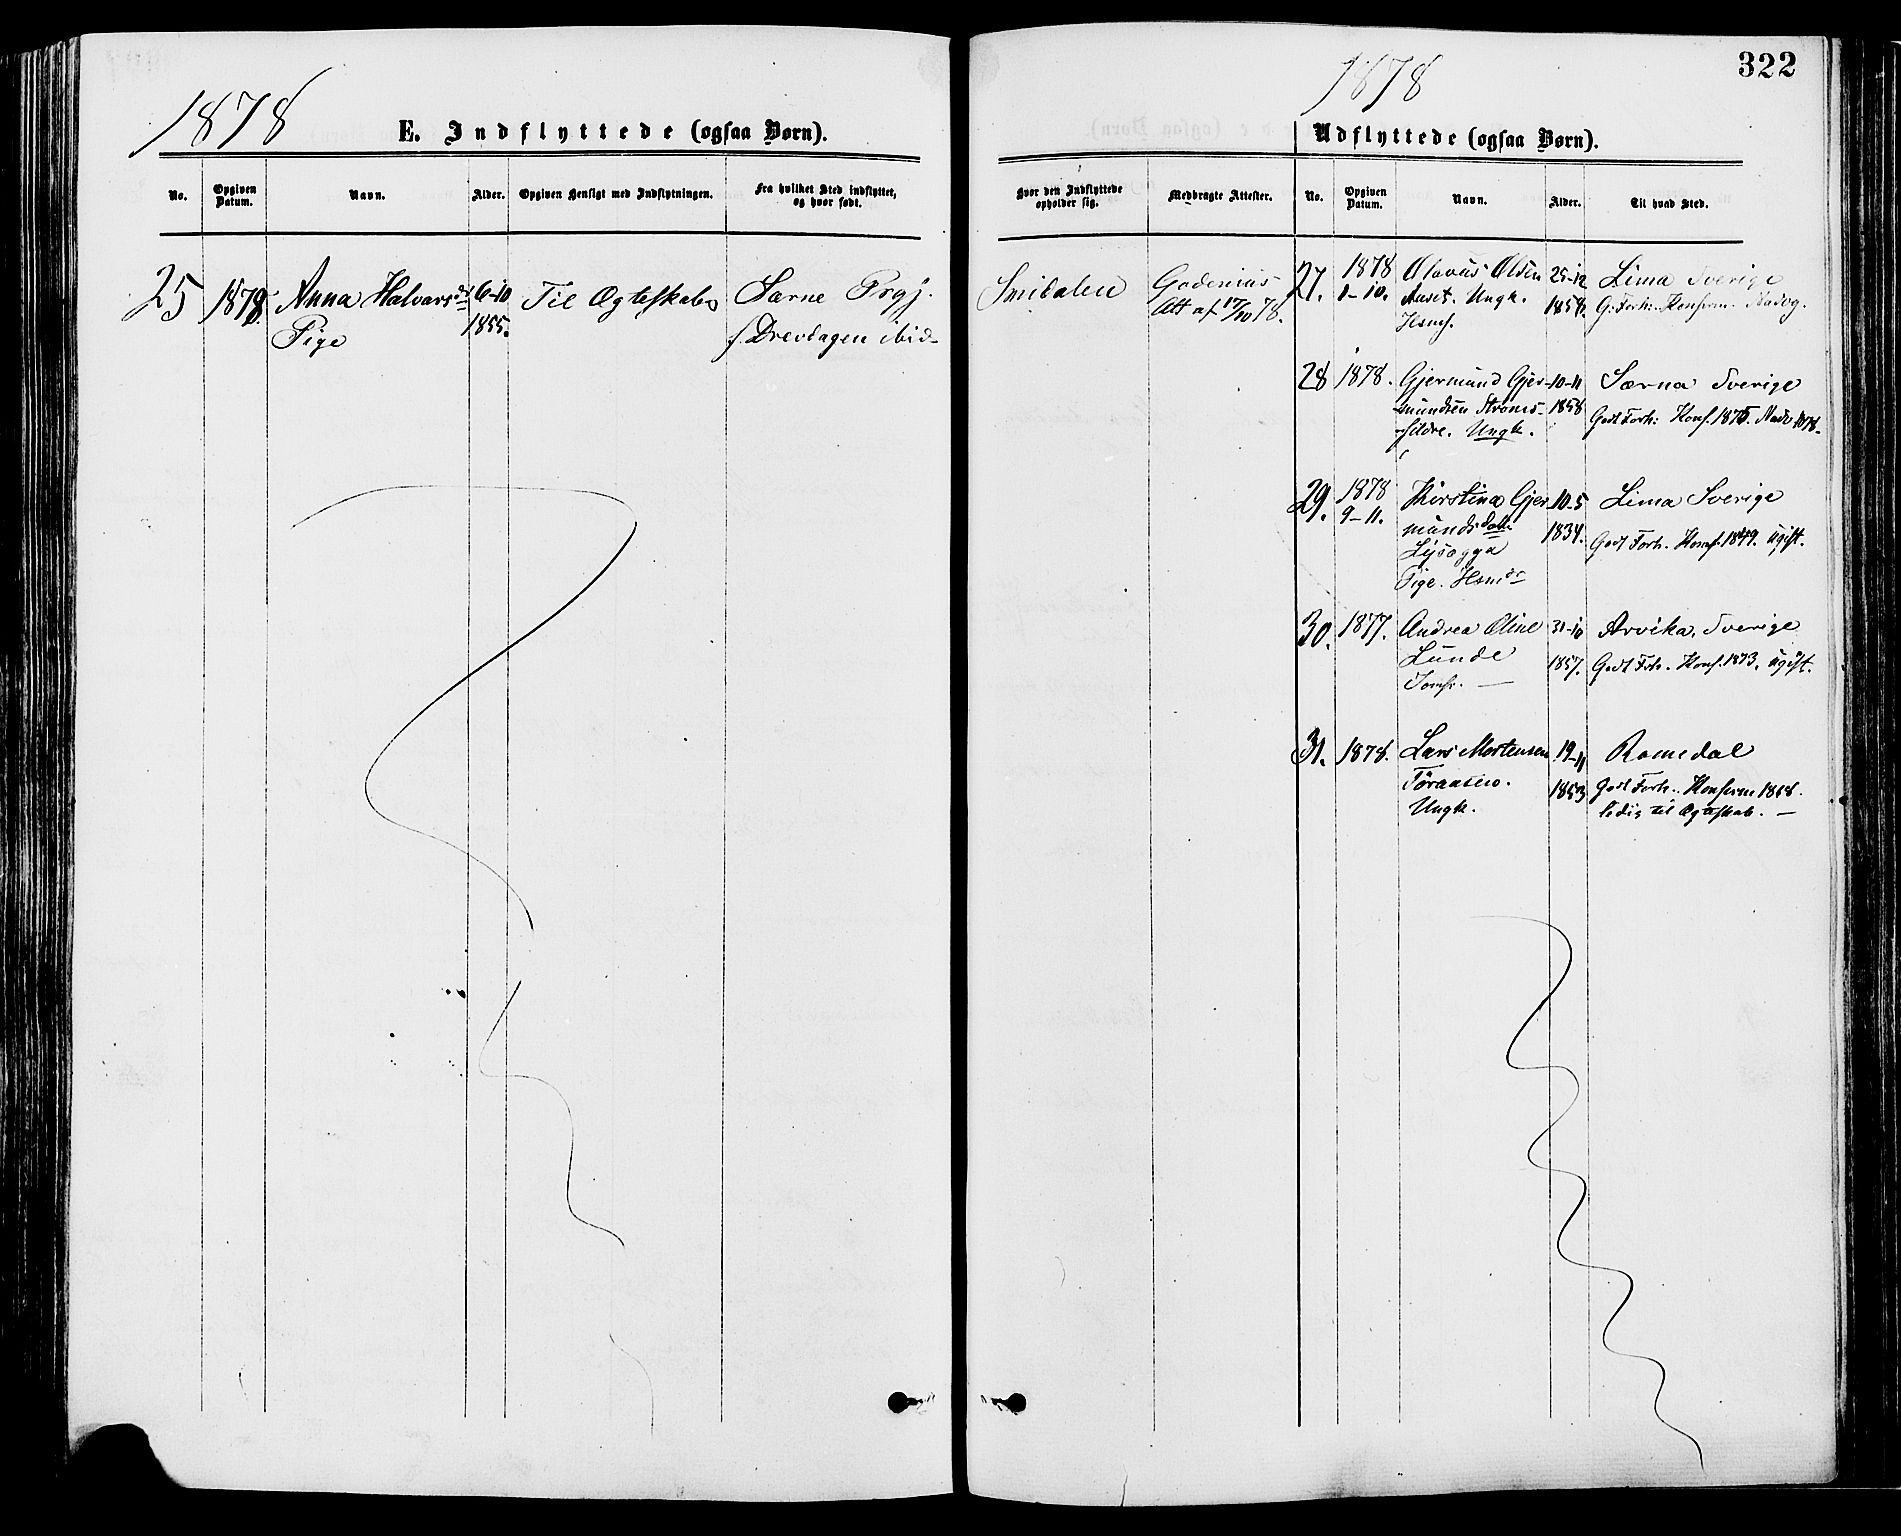 1878
E. Indflyttede (ogsaa Børn).
No. Opgiven Datum. Navn. Alder. Opgiven Hensigt med Indflytningen. Fra hvilket Sted indflyttet, og hvor født.
25 1878. Anna Halvorsdt 6-10 Til Ægteskab Særne Prgj.
Pige 1855. f. Drevdagen ibid-
1878
322
Udflyttede (ogsaa Børn).
Hvor den Indflyttede opholder sig. Medbragte Attester. No. Opgiven Datum. Navn. Alder. Til hvad Sted.
Att af 17/10 78.
27. 1878 Olavus Olsen 25-12 Lima Sverige
1-10. Aaset. Ungk. 1858. G. Forh. Konfirm. Nadv.
Hsmf.
28 1878. Gjermund Gjer- 10-11 Særna Sverige
mundsen Strøms- 1858 Godt Forh: Konf. 1875. Nadv 1878-
Ungk.
29. 1878 Kirstine Gjer 10-5 Lima Sverige
9-11. mundsdatter 1834. Godt Forh. Konf. 1849. ugift.
Pige. Hsmdr
30. 1877. Andrea Oline 31-10 Arvika, Sverige
Lunde 1857. Godt Forh. Konf. 1873. ugift.
Jomfr. —
31. 1878. Lars Mortensen 19-11 Romedal
1853 Godt Forh.. Konfirm 1868.
Ungk. ledig til Ægteskab. —